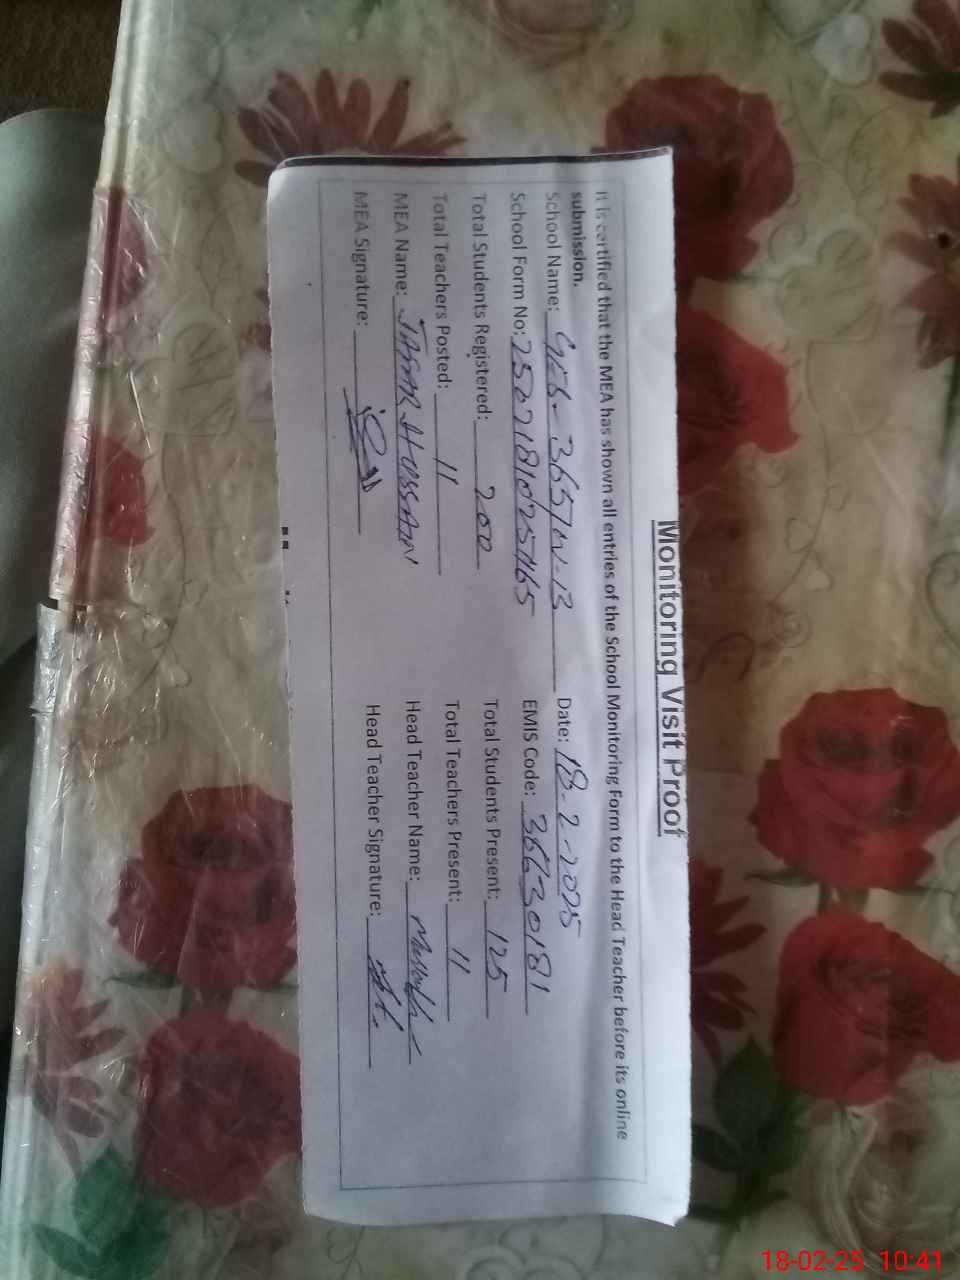 Monitoring Visit Proof
It is certified that the MEA has shown all entries of the School Monitoring Form to the Head Teacher before its online
submission.
School Name: 365/W.B Date: 18-2-2025
School Form No: EMIS Code: 36630181
Total Students Registered: 200 Total Students Present: 125
Total Teachers Posted: 11 Total Teachers Present: 11
MEA Name: JAFAR HUSSAIN Head Teacher Name:
MEA Signature: Head Teacher Signature:
18-02-25 10:41